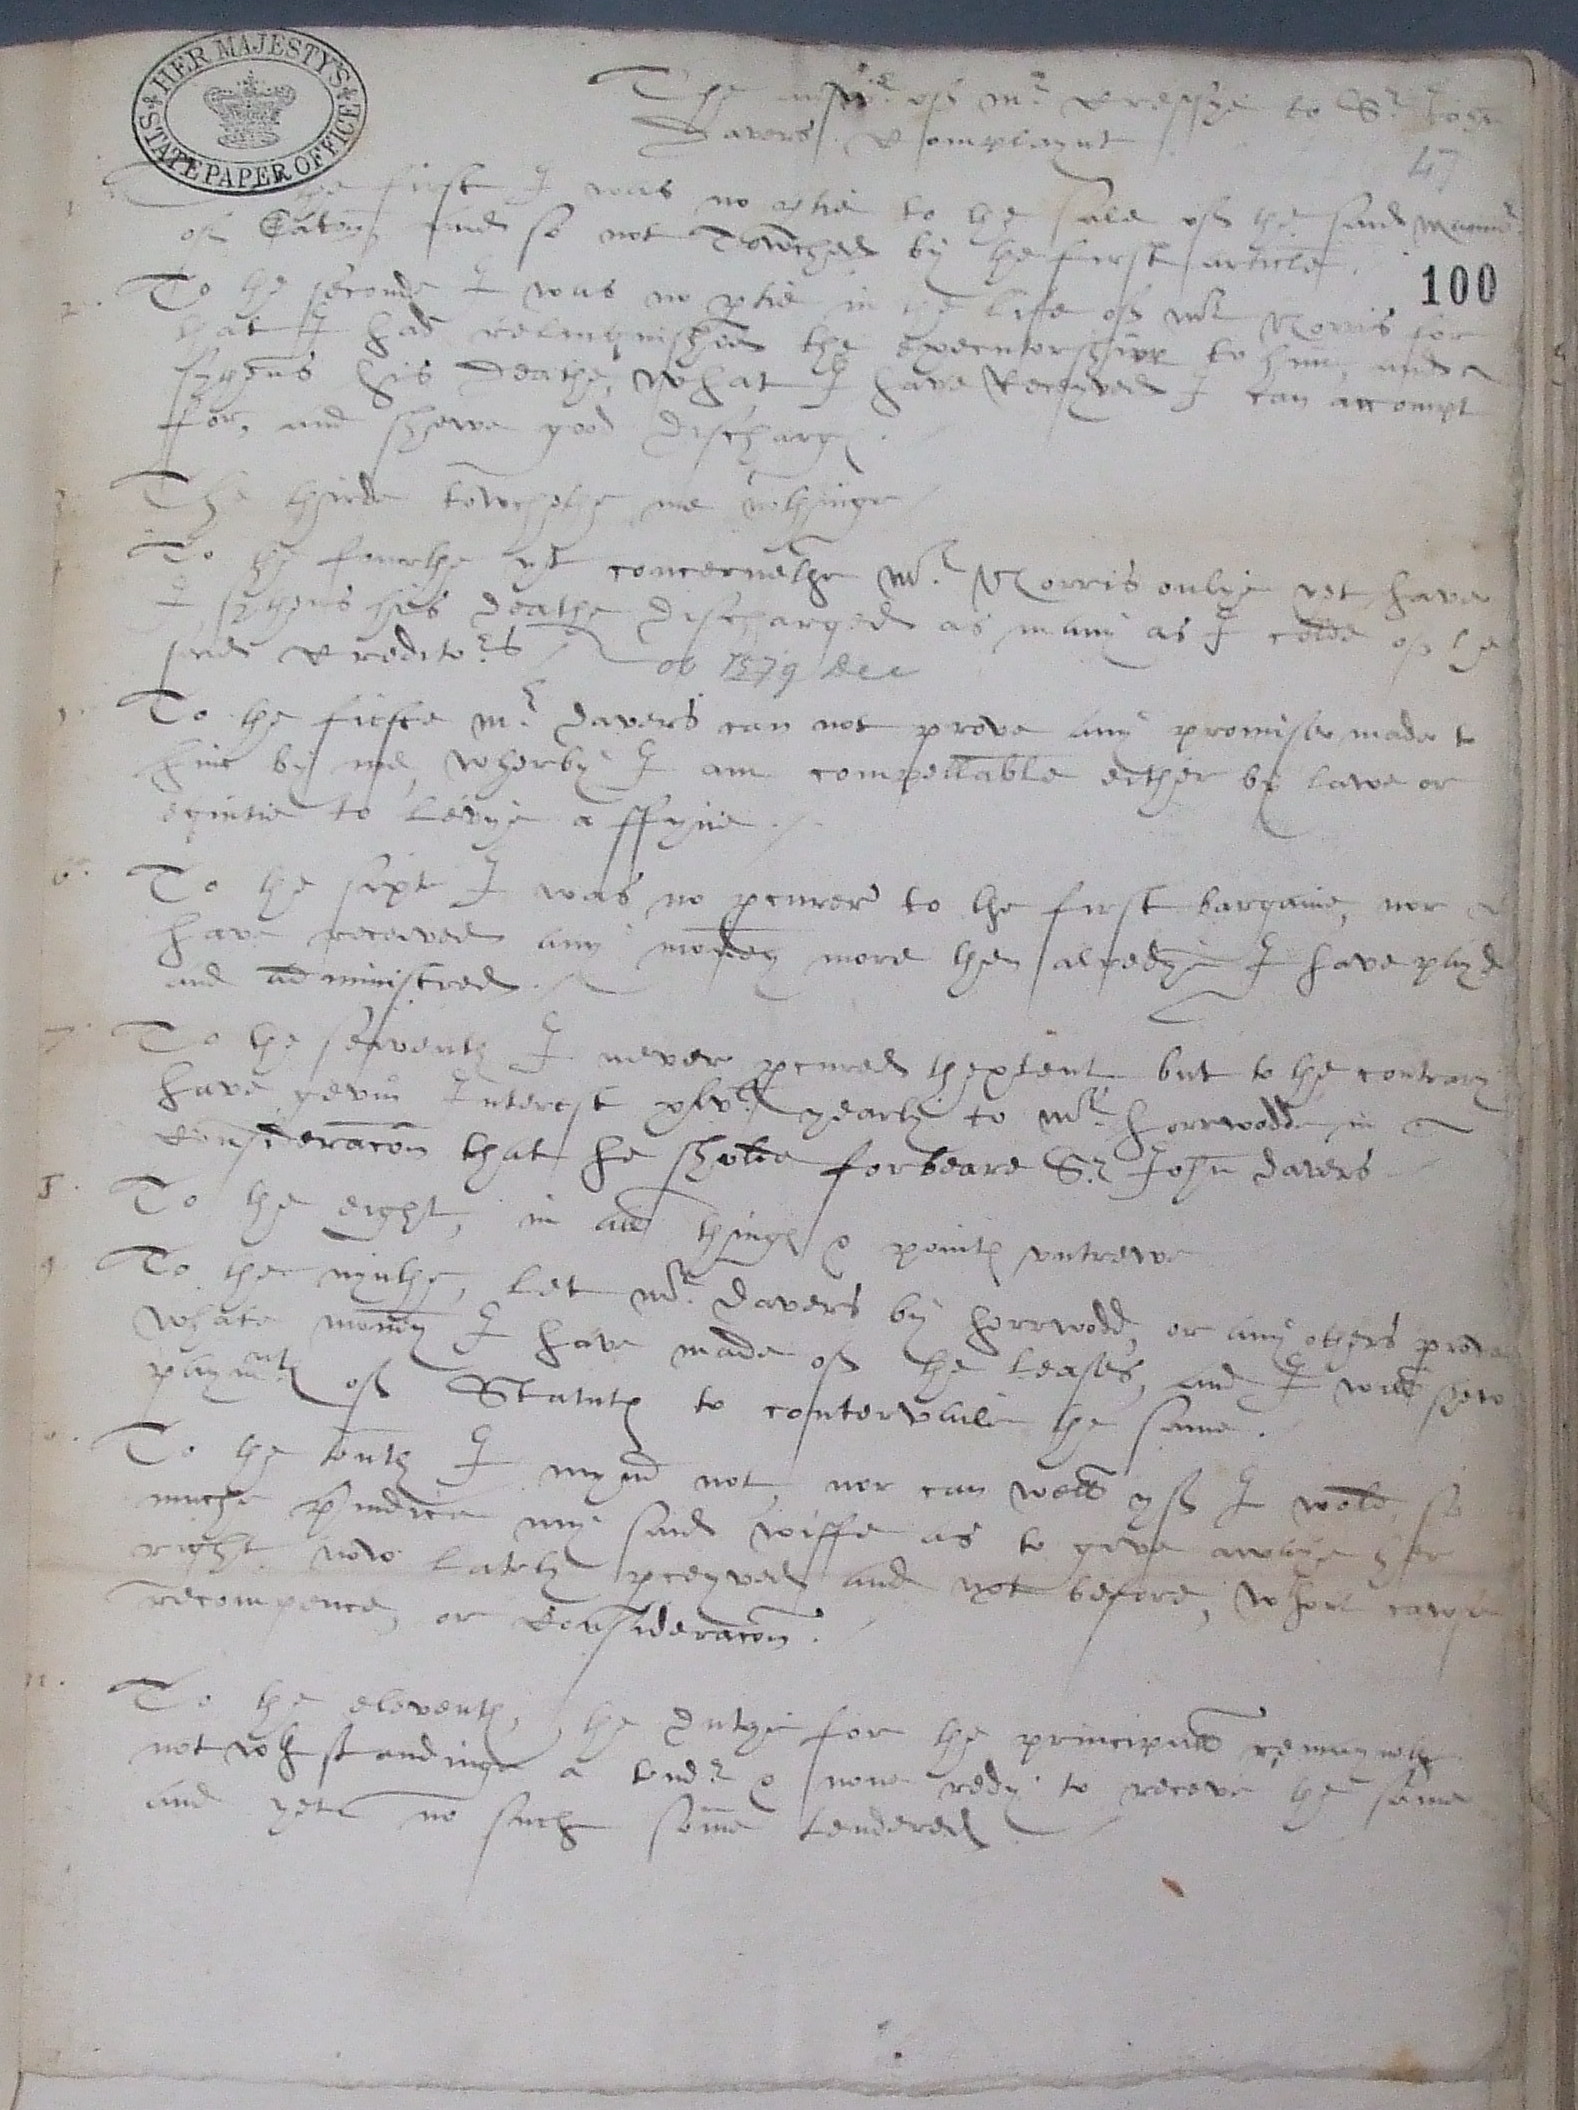 HER MAJESTY'S STATE PAPER OFFICE
The answer of Mr Cressye to Sr John
Davers Complaynt
47
100
1. To the first I was no ptie to the sale of the said Mannor
of Eaton, and so not Towched by the first article.
2. To the seconde I was no ptie in the life of Mr Norris for
that I had relinquished the executorshipp to him, and
sythens his Deathe, what I have Receyved I can accompt
for, and shewe good discharge.
3. The thirde towchethe me nothinge
4. To the fourthe yt concernethe Mr Norris onlye yet have
I sythens his deathe discharged as many as I colde of the
said Creditors
ob 1579 Dec
5. To the fiefte Mr Davers can not prove any promise made to
him by me, wherby I am compellable either by lawe or
equitie to levye a ffyne.
6. To the sixt I was no pcurer to the first bargaine, nor
have received any money more then alredye I have payd
and administred.
7. To the seaventh I never pcured thextent but to the contrary
have geven Interest xlvli yearly to Mr Horrwodd in
Consideracon that he sholde forbeare Sr John Davers
8. To the eight, in all things & points untrewe
9. To the nynthe, let Mr Davers by Horrwodd, or any others prove
whate money I have made of the leases, and I will shew
paymts of Statuts to contervaile the same.
10. To the tenth I mynd not, nor can well yf I wold, so
muche pindice my said wiffe as to geve awaye her
right now lately pceyved and not before, whout cawse
recompence, or Consideracon.
11. To the eleventh, the Dutye for the principall remaynethe
notwthstandinge a tendr & none redy to receve the same
and yet no such some tendered